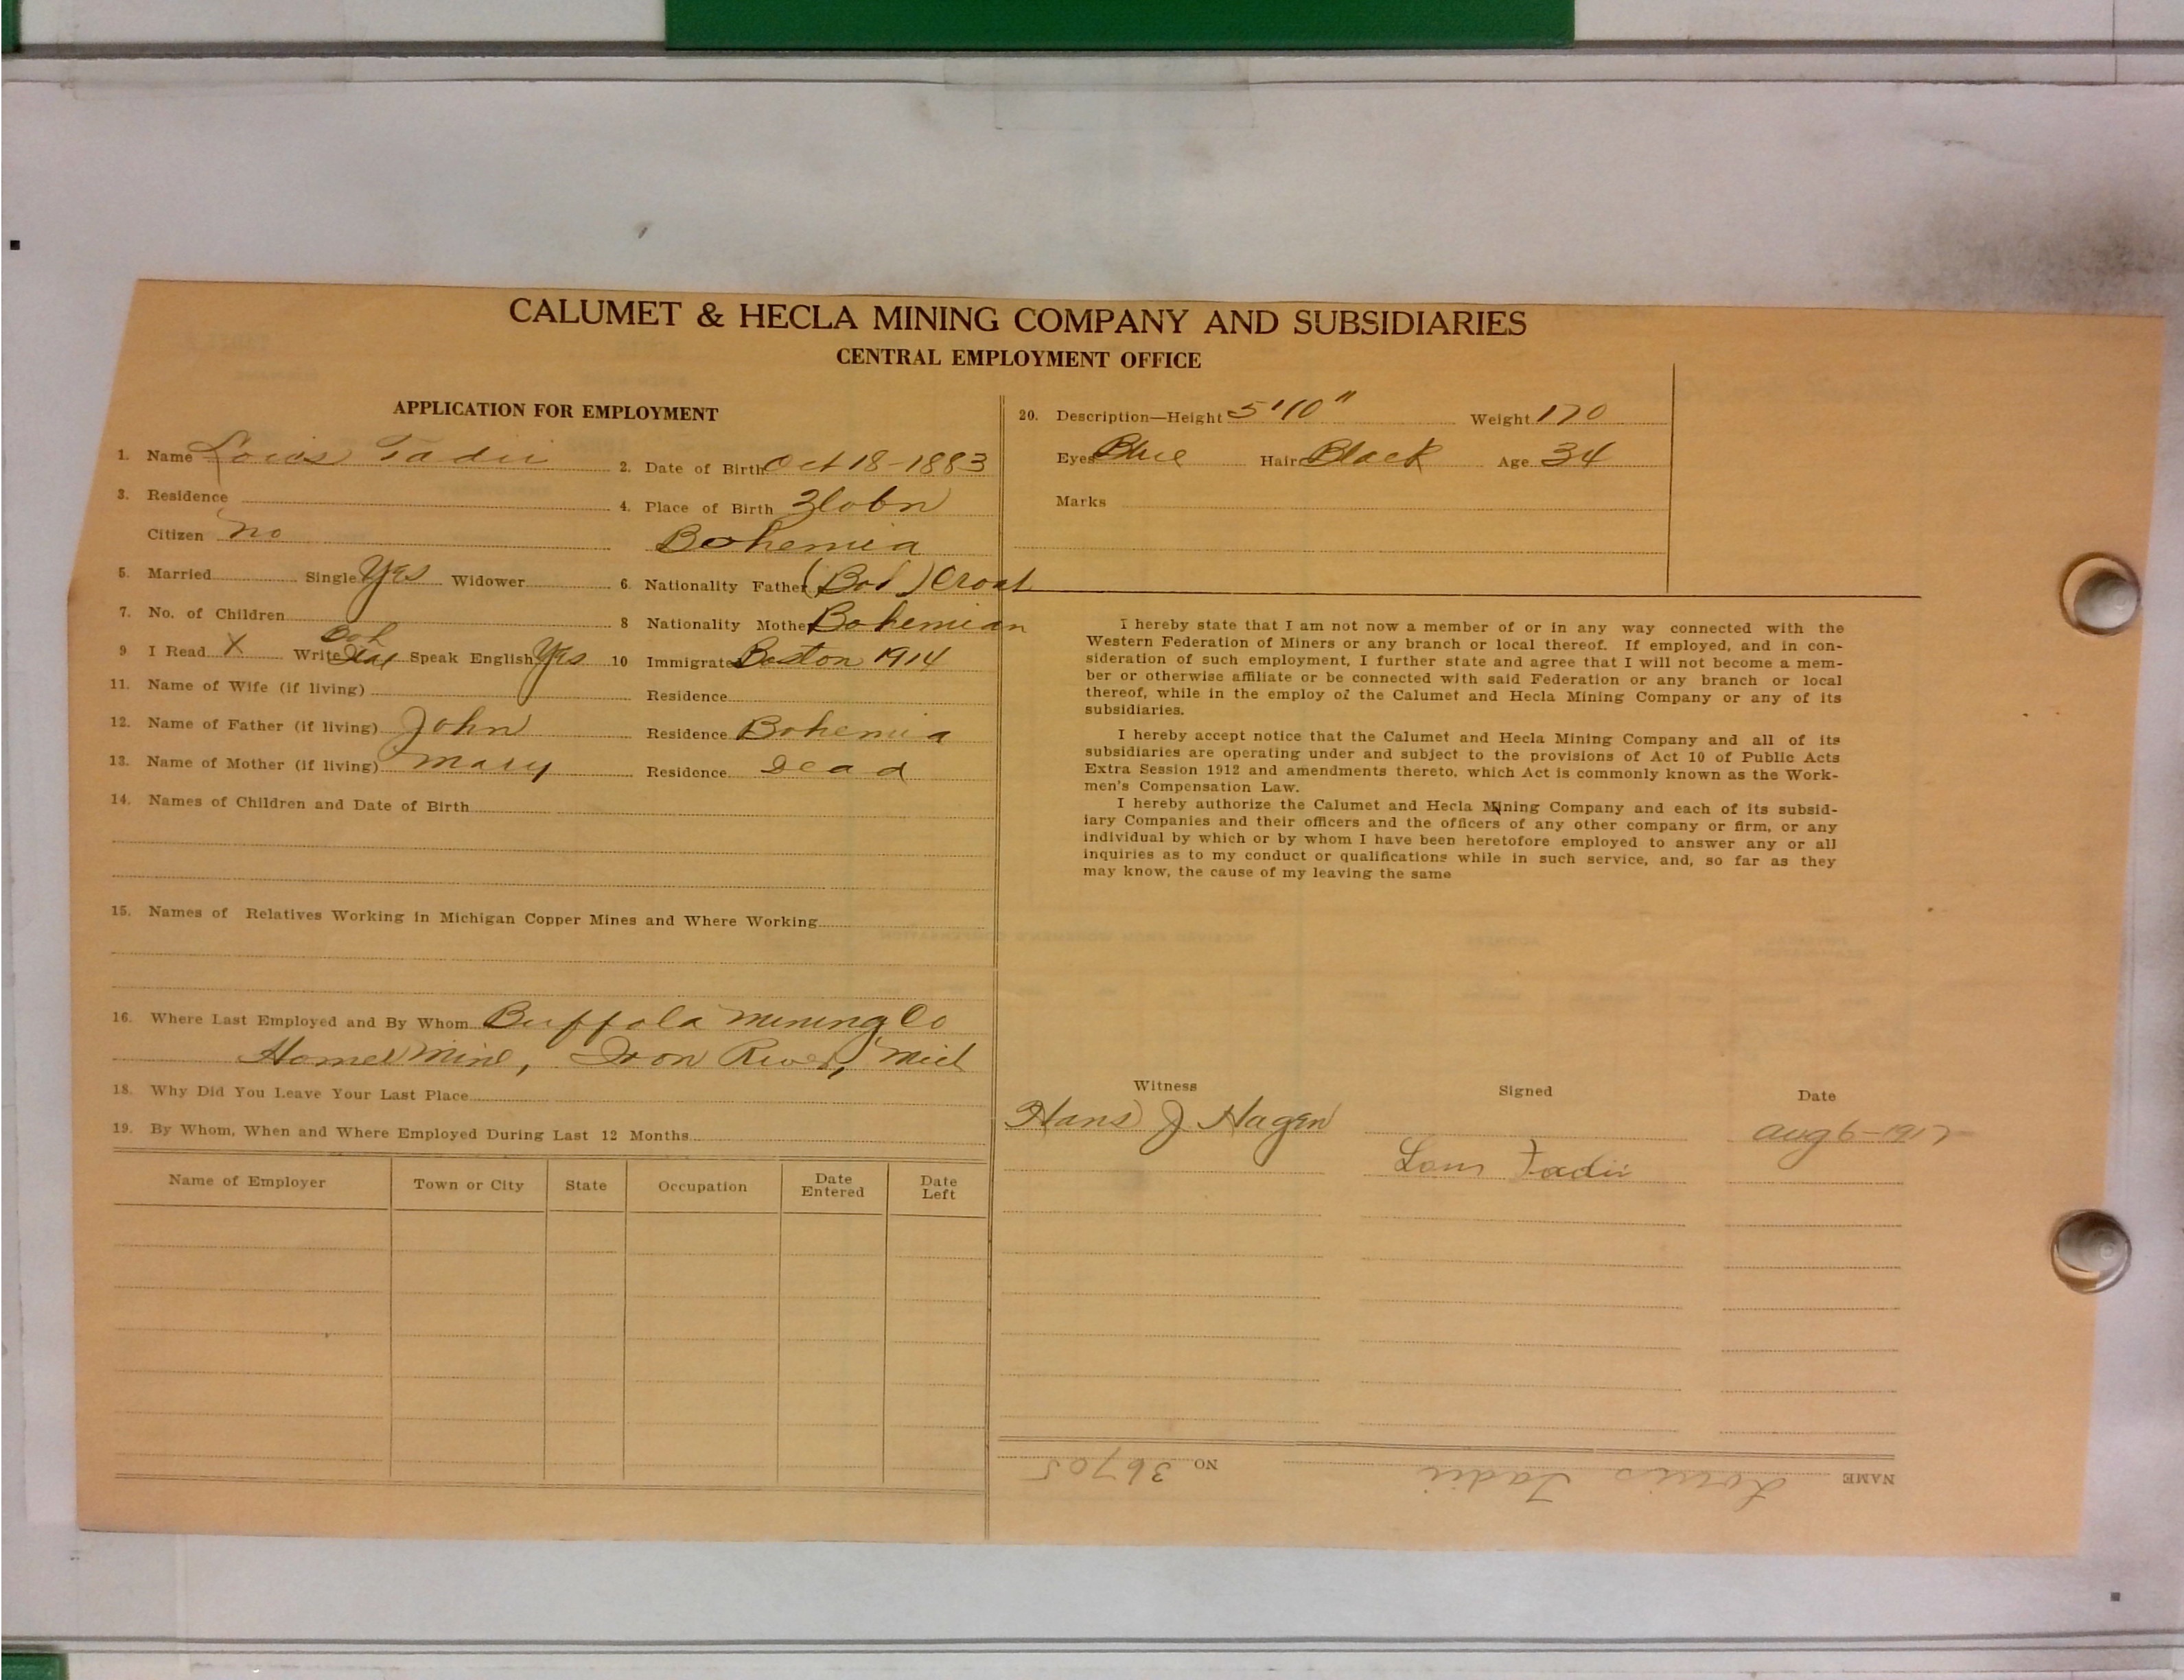 CALUMET & HECLA MINING COMPANY AND SUBSIDIARIES
CENTRAL EMPLOYMENT OFFICE
APPLICATION FOR EMPLOYMENT
1. Name Louis Tadii 2. Date of Birth Oct 18-1883
3. Residence 4. Place of Birth Zlobn
Citizen no Bohemia
5. Married Single Yes Widower 6. Nationality Father (Boh) Croat
7. No. of Children 8 Nationality Mother Bohemian
9 I Read X Write Speak English Yes 10 Immigrate Boston 1914
11. Name of Wife (if living) Residence
12. Name of Father (if living) John Residence Bohemia
13. Name of Mother (if living) Mary Residence Dead
14. Names of Children and Date of Birth
15. Names of Relatives Working in Michigan Copper Mines and Where Working
16. Where Last Employed and By Whom Buffola Mining Co
Homer Mine, Iron River, Mich
18. Why Did You Leave Your Last Place
19. By Whom, When and Where Employed During Last 12 Months
Name of Employer Town or City State Occupation Date Entered Date Left
20. Description—Height 5'10" Weight 170
Eyes Blue Hair Black Age 34
Marks
I hereby state that I am not now a member of or in any way connected with the
Western Federation of Miners or any branch or local thereof. If employed, and in con-
sideration of such employment, I further state and agree that I will not become a mem-
ber or otherwise affiliate or be connected with said Federation or any branch or local
thereof, while in the employ of the Calumet and Hecla Mining Company or any of its
subsidiaries.
I hereby accept notice that the Calumet and Hecla Mining Company and all of its
subsidiaries are operating under and subject to the provisions of Act 10 of Public Acts
Extra Session 1912 and amendments thereto, which Act is commonly known as the Work-
men's Compensation Law.
I hereby authorize the Calumet and Hecla Mining Company and each of its subsid-
iary Companies and their officers and the officers of any other company or firm, or any
individual by which or by whom I have been heretofore employed to answer any or all
inquiries as to my conduct or qualifications while in such service, and, so far as they
may know, the cause of my leaving the same
Witness Signed Date
Hans J Hagen Aug 6-1917
Louis Tadii
NAME Louis Tadii NO 36705